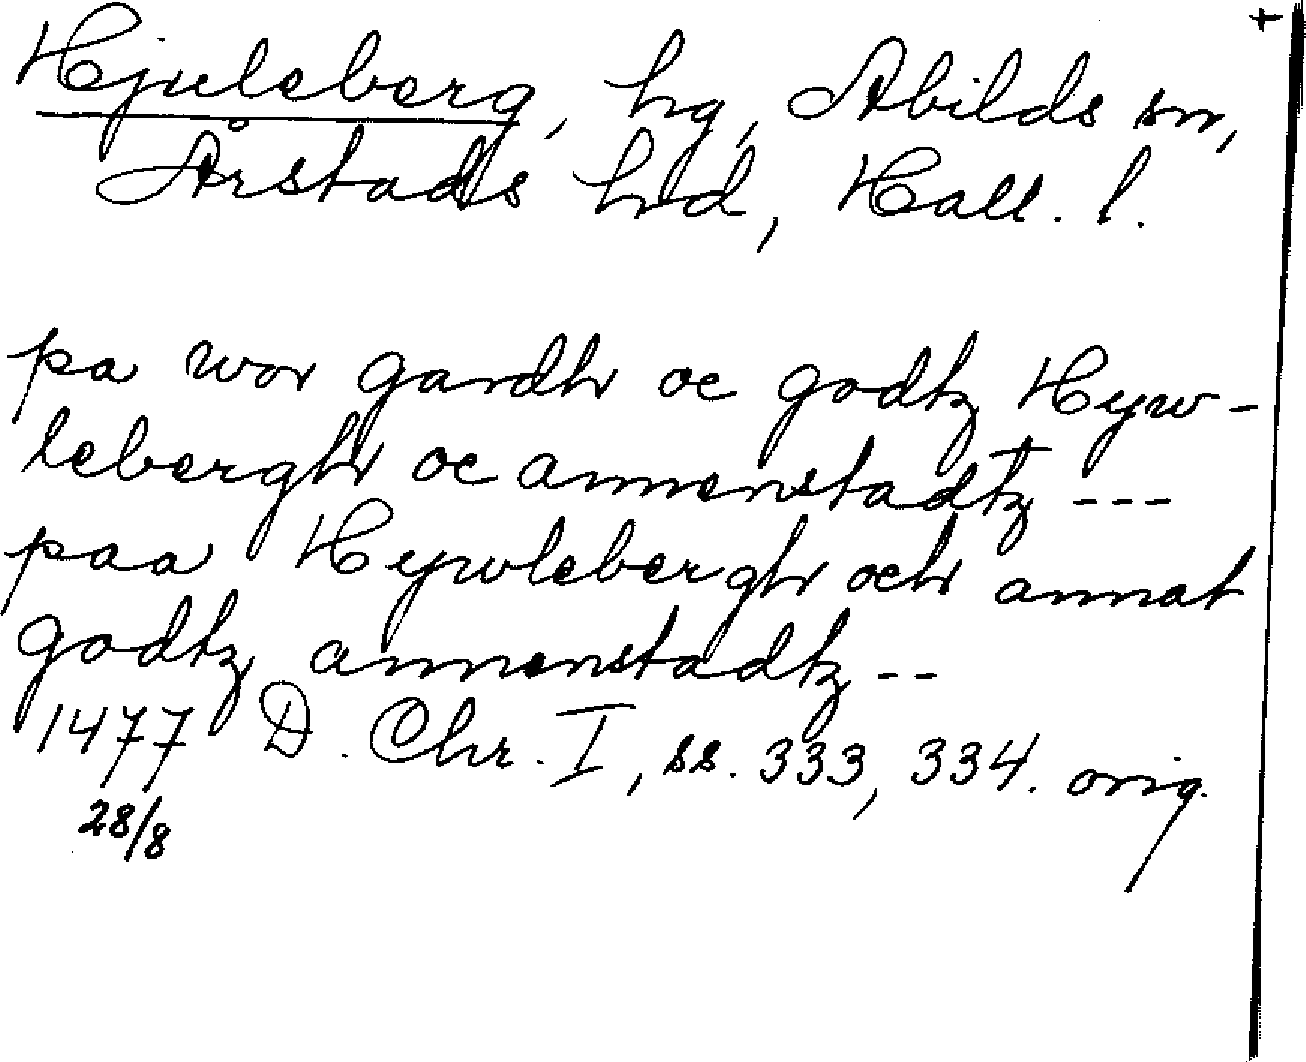 +
Hjuleberg, hg, Abilds sn,
Årstads hd, Hall. l.
pa wor gardh oc godtz Hyw-
lebergh oc annenstadtz ---
paa Hywlebergh och annat
godtz annenstadtz --
1477 D. Chr. I, ss. 333, 334. orig.
28/8